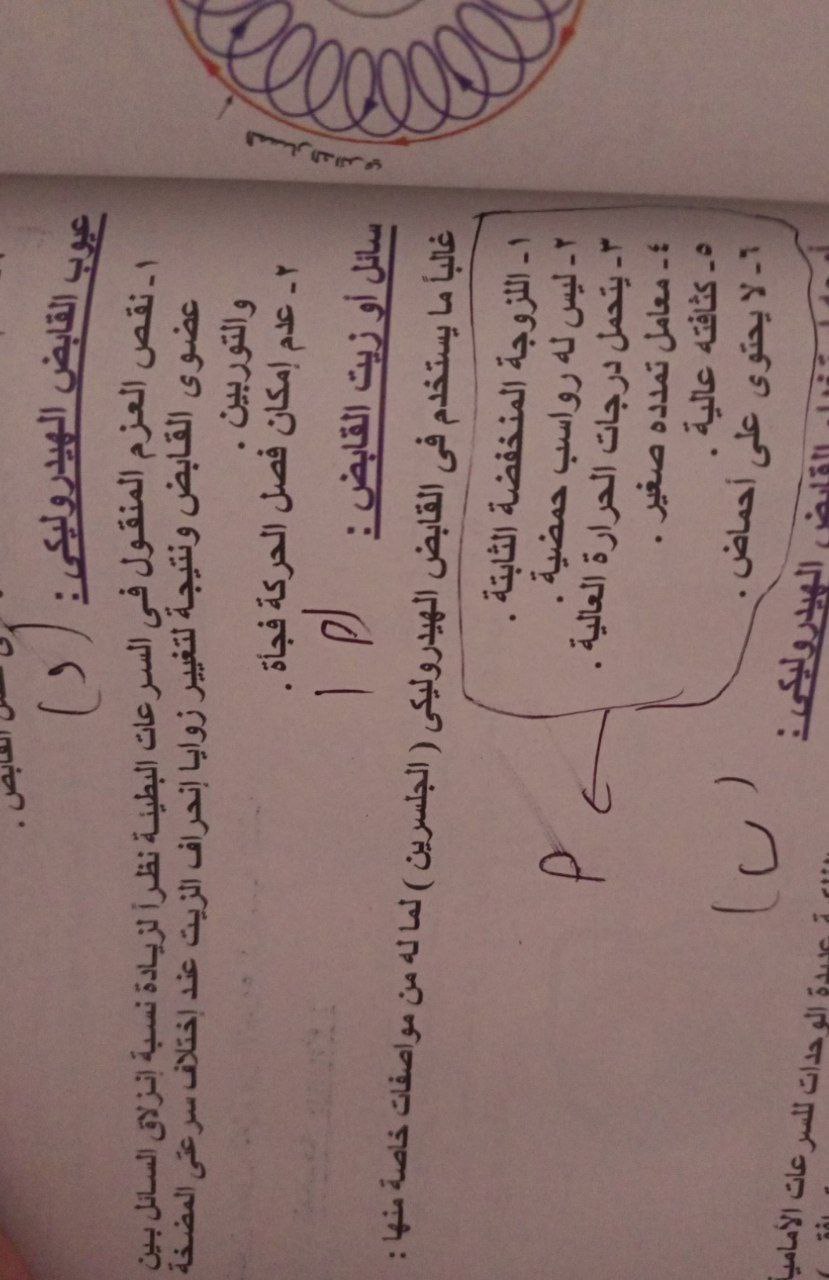 عيوب القابض الهيدروليكى :
(و)
١- نقص العزم المنقول فى السرعات البطيئة نظراً لزيادة نسبة إنزلاق السائل بين
عضوى القابض ونتيجة لتغيير زوايا إنحراف الزيت عند إختلاف سرعتى المضخة
والتوربين .
٢- عدم إمكان فصل الحركة فجأة .
سائل أو زيت القابض :
غالباً ما يستخدم فى القابض الهيدروليكى ( الجلسرين ) لما له من مواصفات خاصة منها :
١- اللزوجة المنخفضة الثابتة .
٢- ليس له رواسب حمضية .
٣- يتحمل درجات الحرارة العالية .
٤- معامل تمدده صغير .
٥- كثافته عالية .
٦- لا يحتوى على أحماض .
(ب)
القابض الهيدروليكى :
عديدة الوحدات للسرعات